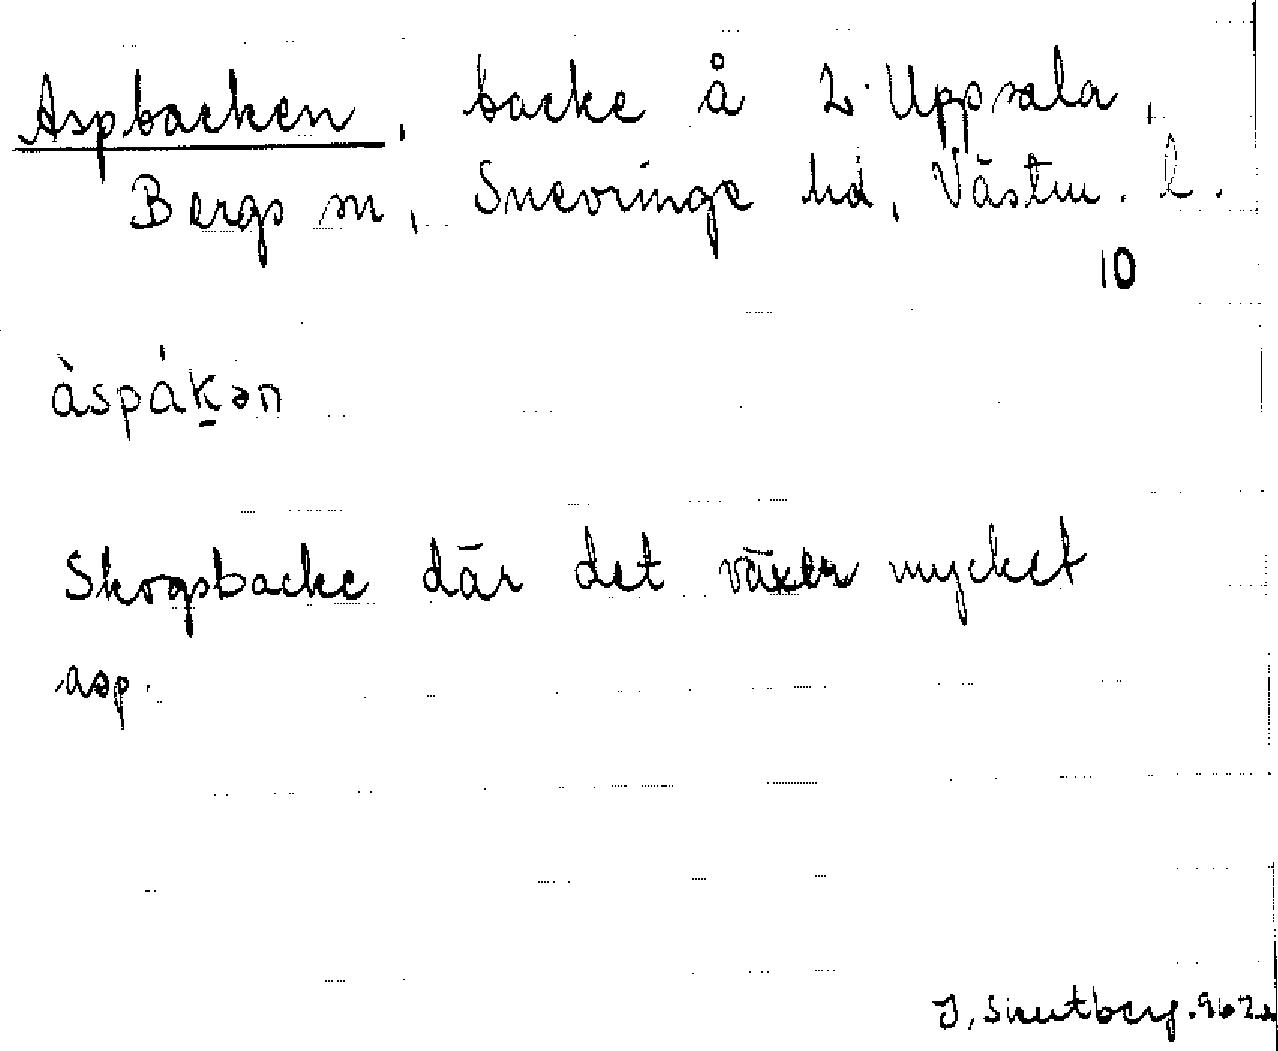 Aspbacken, backe å L. Uppsala,
Bergs sn, Snevringe hd, Västm. l.
10
àspák̠ən
Skogsbacke där det växer mycket
asp.